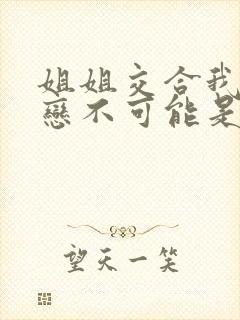 姐姐交合我
戀不可能是
望天一笑